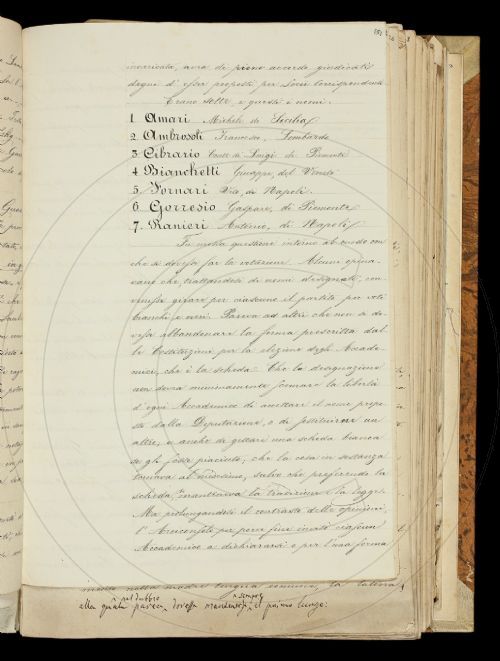 incaricata, avea di pieno accordo giudicati
degni d'esser proposti per Socii Corrispondenti
Erano sette, e questi i nomi.
1 Amari Michele di Sicilia
2 Ambrosoli Francesco, Lombardo
3 Cibrario Conte Luigi di Piemonte
4 Bianchetti Giuseppe, del Veneto
5 Fornari Vito, di Napoli
6 Gorresio Gaspare, di Piemonte
7. Ranieri Antonio, di Napoli
Fu mossa questione intorno al modo con
che si dovesse far la votazione. Alcuni opina-
vano che trattandosi di nomi designati, con-
venisse girare per ciascuno il partito per voti
bianchi e neri. Pareva ad altri che non si do-
vesse abbandonare la forma prescritta dal-
le Costituzioni per la elezione degli Accade-
mici, che è la scheda. Che la designazione
non dovea menomamente scemare la libertà
d'ogni Accademico di accettare il nome propo-
sto dalla Deputazione, o di sostituirne un
altro, o anche di gettare una scheda bianca
se gli fosse piaciuto; che la cosa in sostanza
tornava al medesimo, salvo che preferendo la
scheda, la tradizione e la legge.
Ma prolungandosi il contrasto delle opinioni,
l'Arciconsolo per porre fine invitò ciascun
Accademico a dichiararsi o per l'una forma
nostra madre lingua comune, la latina,
nel dubbio sempre
alla quale pareva dovesse mantenersi il primo luogo.